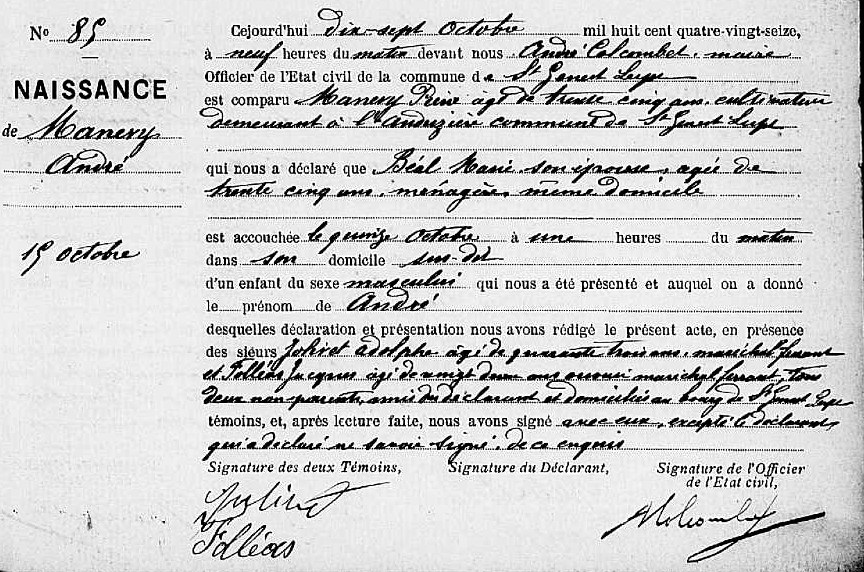 N° 85
NAISSANCE
de Manevy
André
15 octobre
Cejourd'hui dix-sept Octobre mil huit cent quatre-vingt-seize,
à neuf heures du matin devant nous André Colcombet, maire
Officier de l'Etat civil de la commune de St Genest Lerpt
est comparu Manevy Pierre âgé de trente cinq ans, cultivateur
demeurant à commune de St Genest Lerpt
qui nous a déclaré que Béal Marie son épouse, agée de
trente cinq ans, ménagère, même domicile
est accouchée le quinze Octobre à une heures du matin
dans son domicile sus-dit
d'un enfant du sexe masculin qui nous a été présenté et auquel on a donné
le prénom de André
desquelles déclaration et présentation nous avons rédigé le présent acte, en présence
des sieurs Jolivet Adolphe âgé de quarante trois ans, maréchal ferrant
et Folléas Jacques âgé de vingt deux ans ouvrier maréchal ferrant, tous
deux non parents, amis du déclarant et domiciliés au bourg de St Genest Lerpt
témoins, et, après lecture faite, nous avons signé avec eux, excepté le déclarant,
qui a déclaré ne savoir signé, de ce enquis
Signature des deux Témoins, Signature du Déclarant, Signature de l'Officier
de l'Etat civil,
Jolivet
Folléas